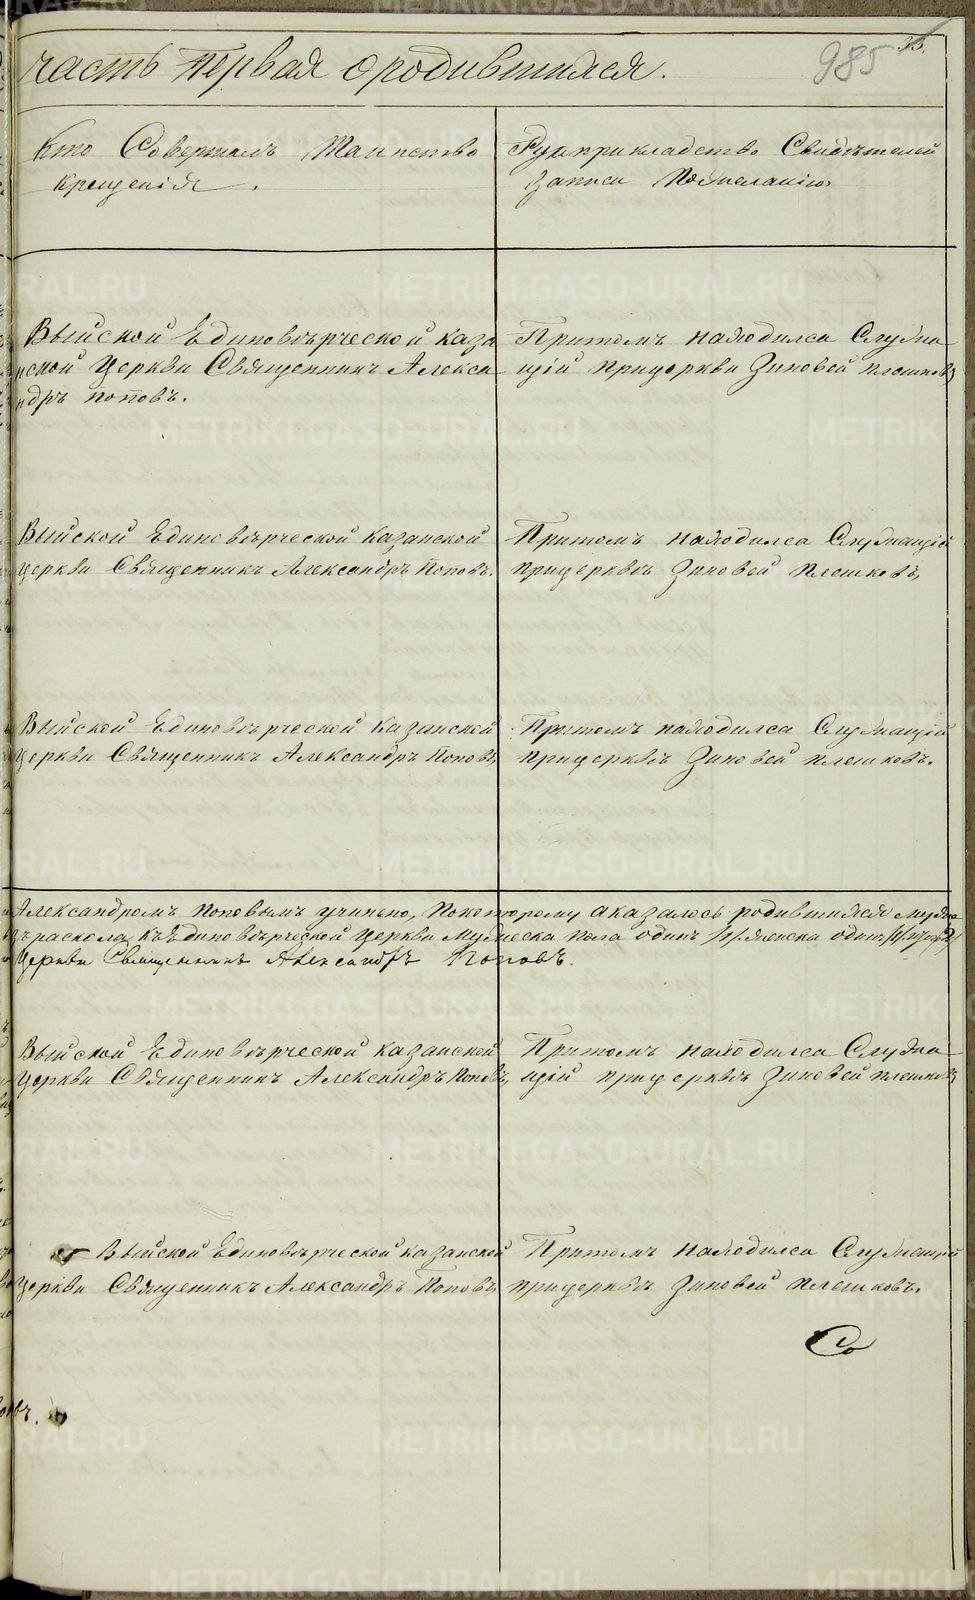 часть первая о родившихся.
985
Кто Совершалъ Таинство
Крещенія.
Рукприкладство Свидѣтелей
Записи Пожеланію
Выйской Единовѣрческой Каза
нской Церкви Священникъ Алекса
ндръ Поповъ.
Притомъ находился Служа
щій Прицеркви Зиновей Плешковъ
Выйской Единовѣрческой Казанской
Церкви Священникъ Александръ Поповъ.
Притомъ находился Служащій
Прицерквѣ Зиновей Плешковъ,
Выйской Единовѣрческой Казанской
Церкви Священникъ Александръ Поповъ
Притомъ находился Служащій
Прицерквѣ Зиновей Плешковъ.
Александромъ Поповымъ учинено, Покоторому аказалось родившихся мужа
раскола къ Единовѣрческой Церкви Мужеска Пола одинъ /1/. Женска одинъ /1/
Церкви Священникъ Александръ Поповъ.
Выйской Единовѣрческой Казанской
Церкви Священникъ Александръ Поповъ,
Притомъ находился Служа
щій прицерквѣ Зиновей Плешковъ
Выйской Единовѣрческой Казанской
Церкви Священникъ Александръ Поповъ
Притомъ находился Служащій
прицерквѣ Зиновей Плешковъ.
Со